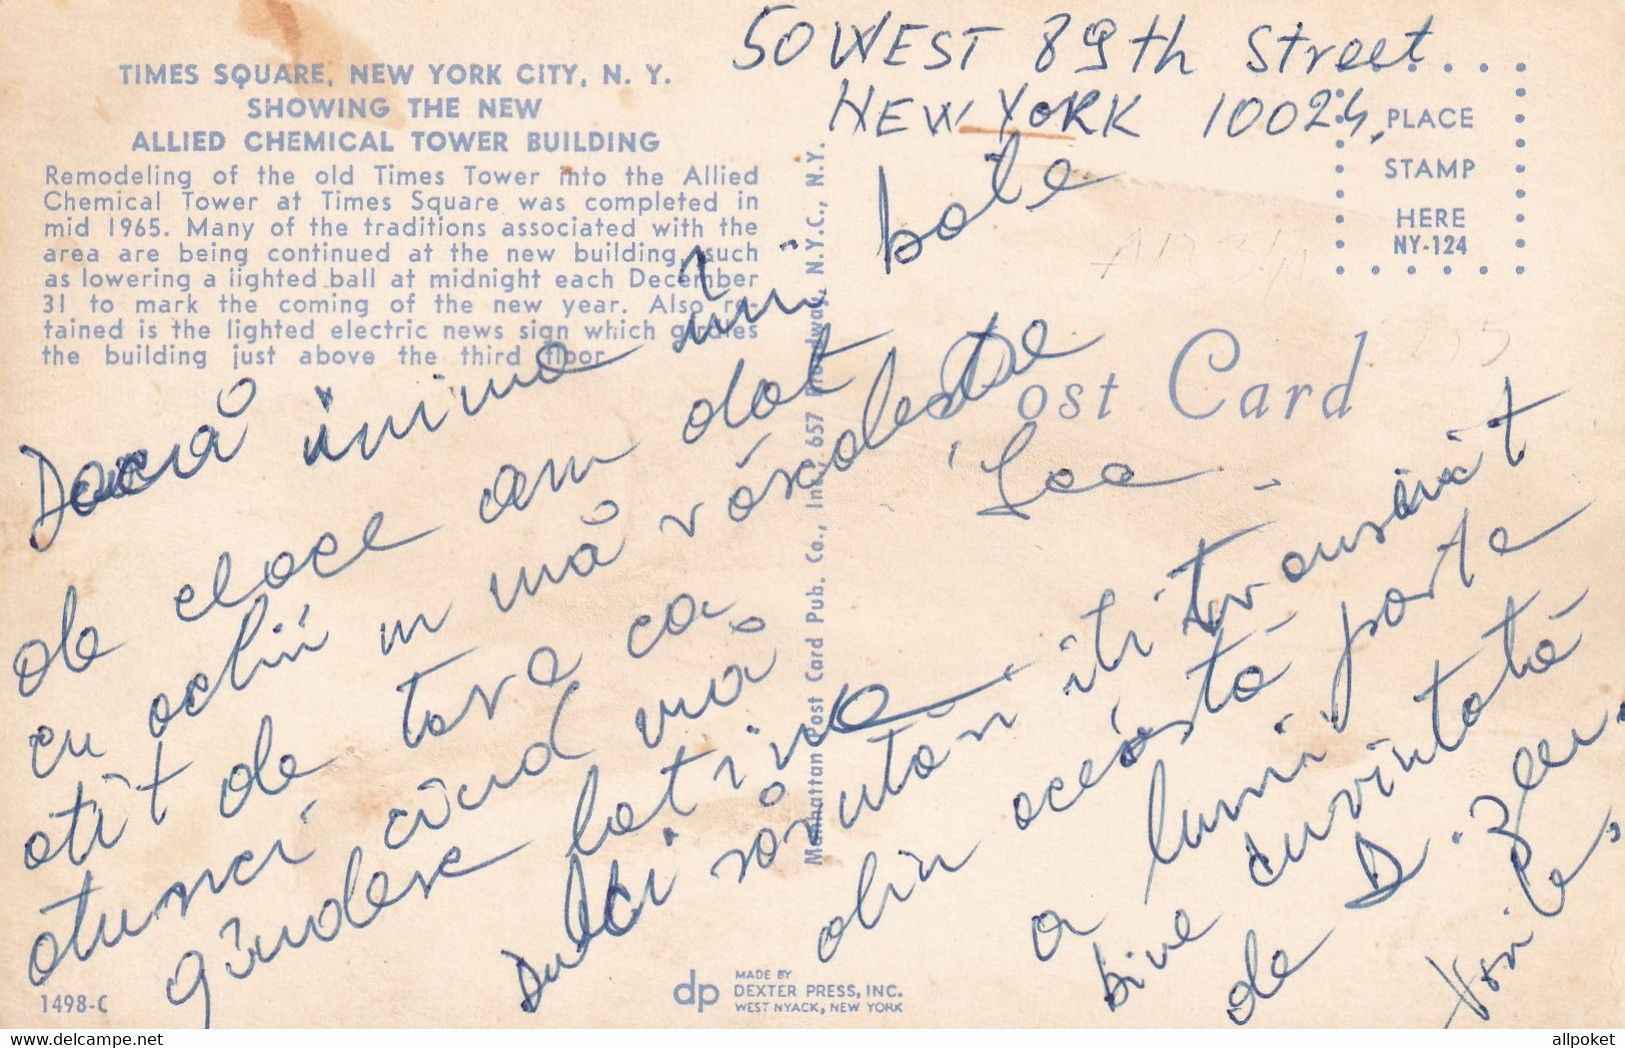 50 WEST 89th Street
NEW YORK 10024,
TIMES SQUARE, NEW YORK CITY, N. Y.
SHOWING THE NEW
ALLIED CHEMICAL TOWER BUILDING
Remodeling of the old Times Tower into the Allied
Chemical Tower at Times Square was completed in
mid 1965. Many of the traditions associated with the
area are being continued at the new building, such
as lowering a lighted ball at midnight each December
31 to mark the coming of the new year. Also re-
tained is the lighted electric news sign which girdles
the building just above the third floor.
PLACE
STAMP
HERE
NY-124
Post Card
Manhattan Post Card Pub. Co., Inc., 657 Broadway, N.Y.C., N.Y.
Dacă inima îmi bate
de ceace am dat
cu ochii m mă răscolește
atît de tare ca
atunci cînd mă
gîndesc la tine
Lea
Dulci sărutări iti transmit
din aceastá parte
a lumii
bine cuvîntată
de D. zeu.
1498-C
dp
MADE BY
DEXTER PRESS, INC.
WEST NYACK, NEW YORK
allpoket